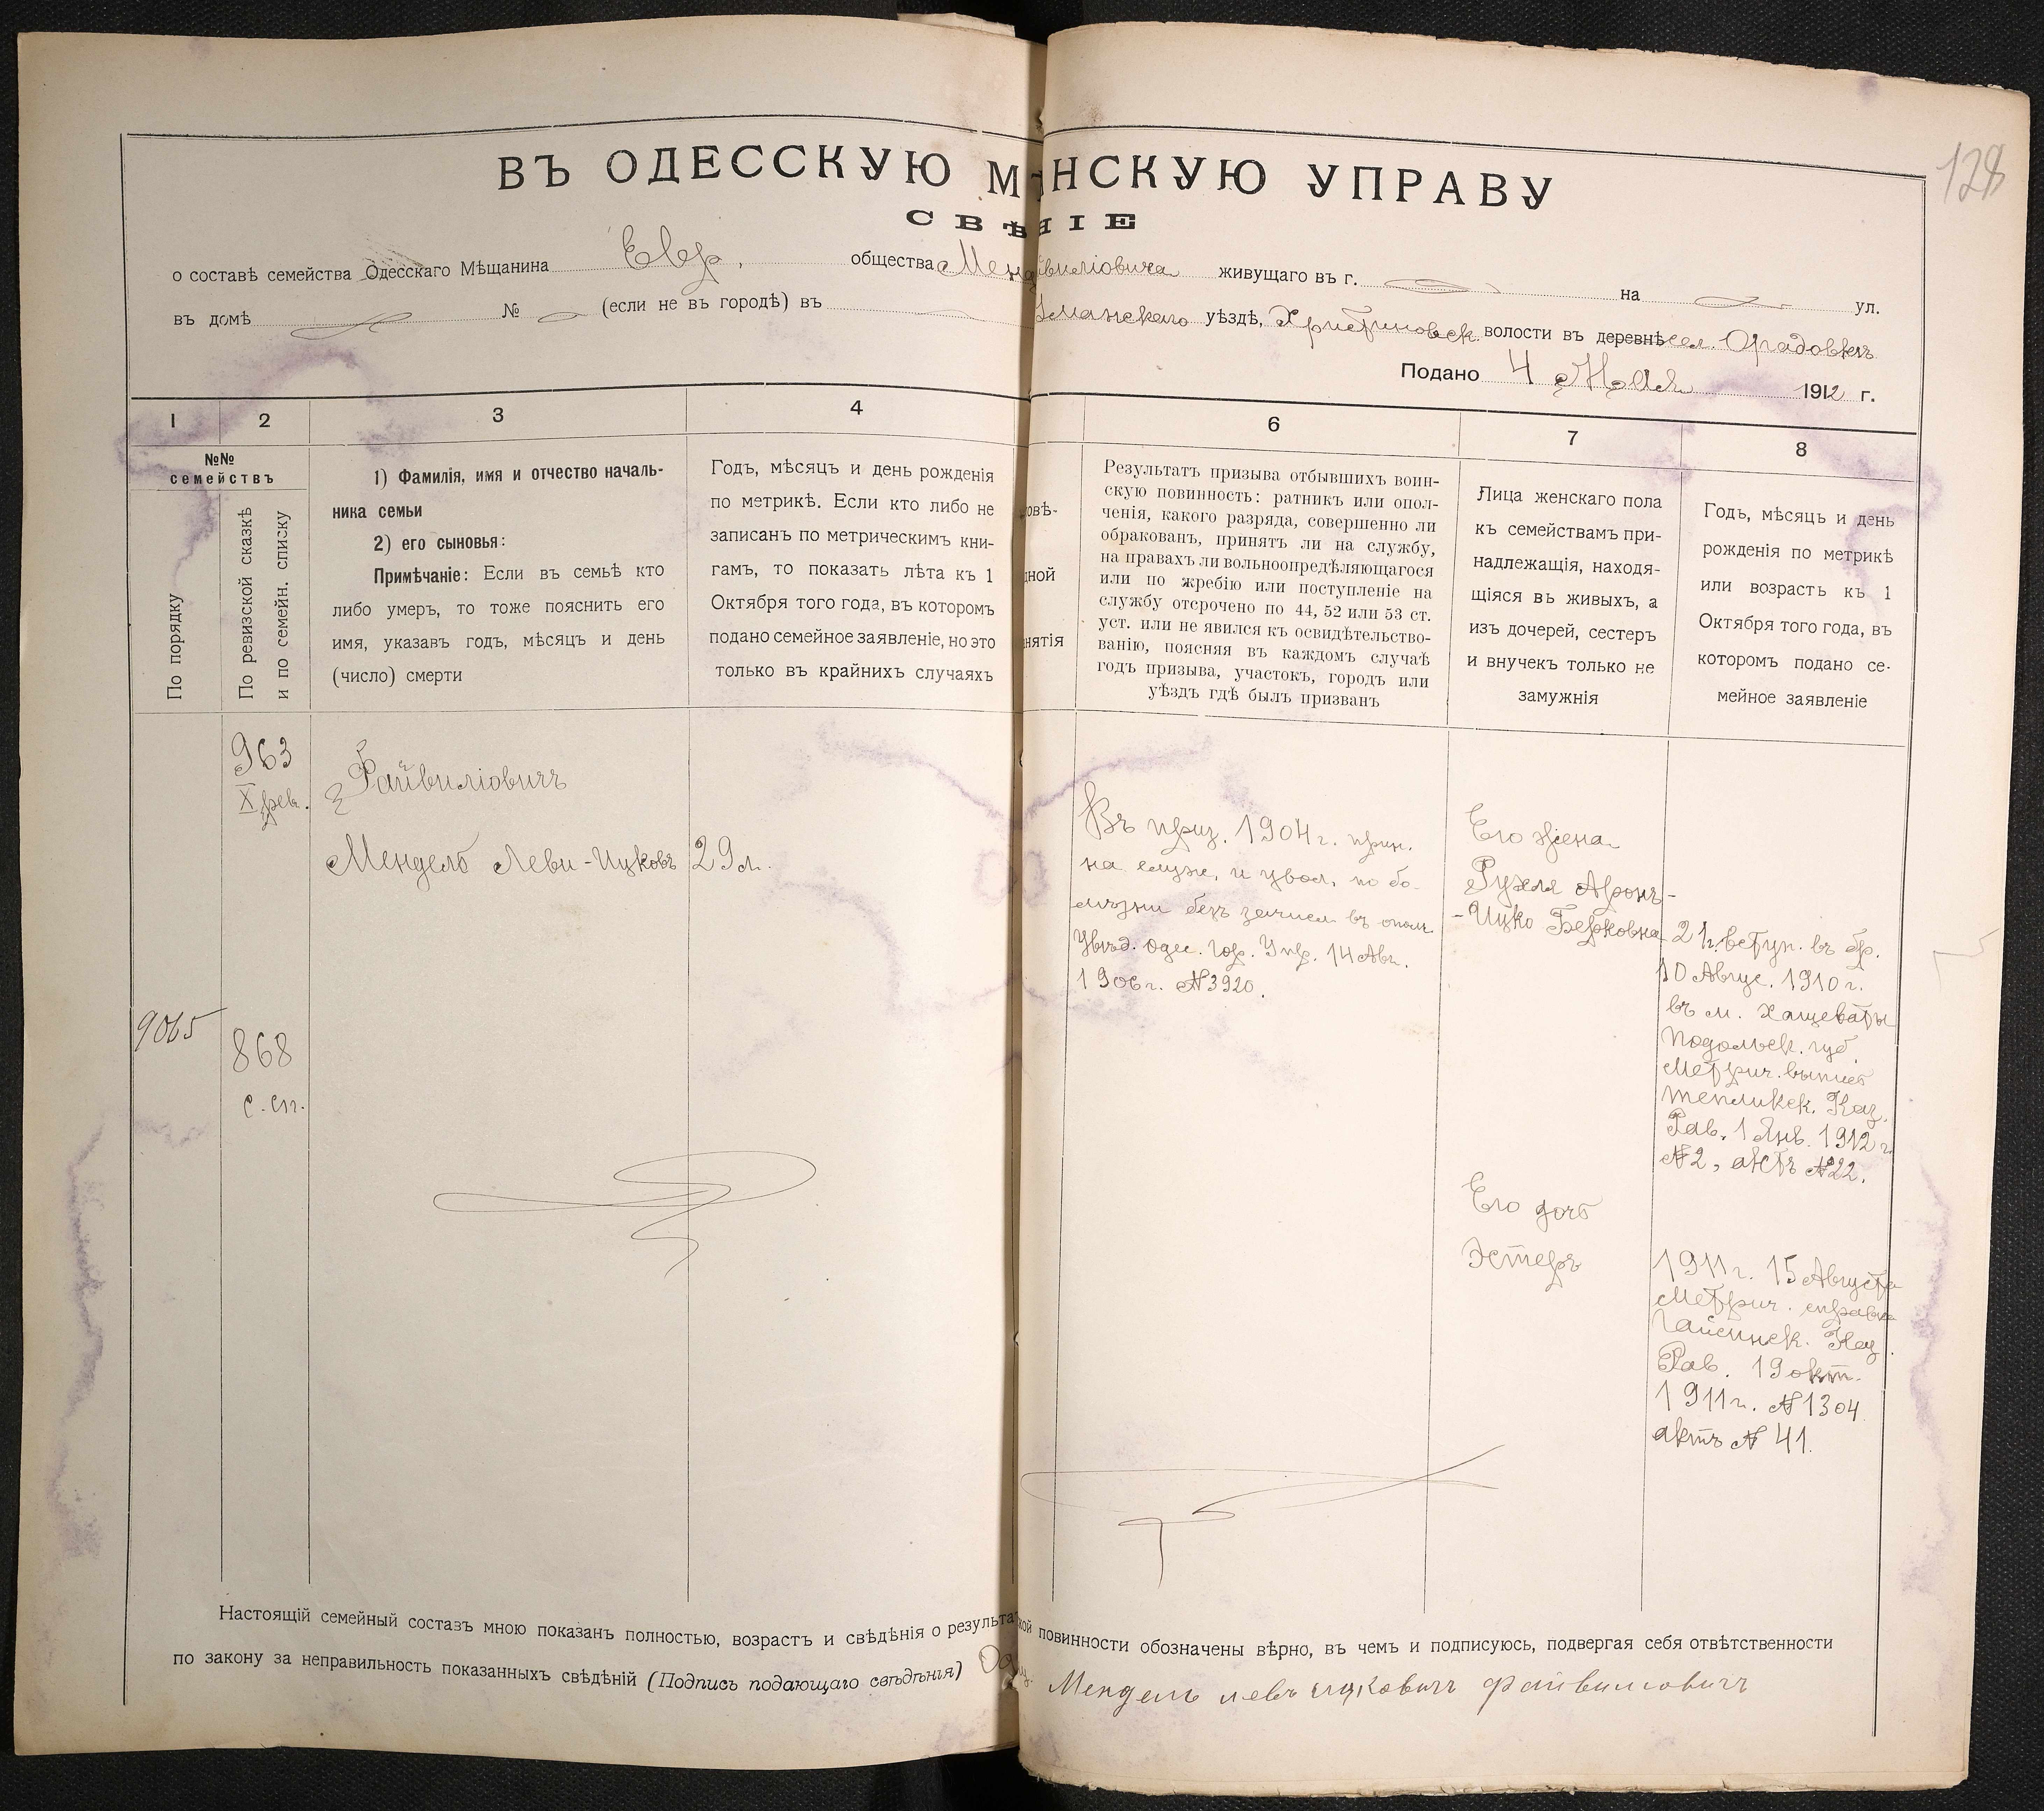 128
ВЪ ОДЕССКУЮ М НСКУЮ УПРАВУ
СВѢ НІЕ
о составѣ семейства Одесскаго Мѣщанина Евр. общества Менд Файвиліовича живущаго въ г. на ул.
въ домѣ № (если не въ городѣ) въ Уманскаго уѣздѣ, Христиновск. волости въ деревнѣ сел. Орадовкѣ
Подано 4 Мая 1912 г.
1 2 3 4 6 7 8
№№
семействъ
По порядку
По ревизской сказкѣ
и по семейн. списку
1) Фамилія, имя и отчество началь-
ника семьи
2) его сыновья:
Примѣчаніе: Если въ семьѣ кто
либо умеръ, то тоже пояснить его
имя, указавъ годъ, мѣсяцъ и день
(число) смерти
Годъ, мѣсяцъ и день рожденія
по метрикѣ. Если кто либо не
записанъ по метрическимъ кни-
гамъ, то показать лѣта къ 1
Октября того года, въ которомъ
подано семейное заявленіе, но это
только въ крайнихъ случаяхъ
овѣ-
дной
нятія
Результатъ призыва отбывшихъ воин-
скую повинность: ратникъ или опол-
ченія, какого разряда, совершенно ли
обракованъ, принятъ ли на службу,
на правахъ ли вольноопредѣляющагося
или по жребію или поступленіе на
службу отсрочено по 44, 52 или 53 ст.
уст. или не явился къ освидѣтельство-
ванію, поясняя въ каждомъ случаѣ
годъ призыва, участокъ, городъ или
уѣздъ гдѣ былъ призванъ
Лица женскаго пола
къ семействамъ при-
надлежащія, находя-
щіяся въ живыхъ, а
изъ дочерей, сестеръ
и внучекъ только не
замужнія
Годъ, мѣсяцъ и день
рожденія по метрикѣ
или возрастъ къ 1
Октября того года, въ
которомъ подано се-
мейное заявленіе
963
X рев.
9065
868
с. сп.
Файвиліовичъ
Мендель Леви-Ицковъ
29 л.
Въ приз. 1904 г. прин.
на служ. и увол. по бо-
лѣзни безъ зачисл. въ ополч.
Увѣд. Одес. Гор. Упр. 14 Авг.
1906 г. №3920.
Его жена
Рухля Аронъ-
-Ицко Берковна
21 г. вступ. въ бр.
10 Авгус. 1910 г.
въ м. Хащеваты
Подольск. губ.
Метрич. выпись
Тепликск. Каз.
Рав. 1 Янв. 1912 г.
№2, актъ №22.
Его дочь
Эстеръ
1911 г. 15 Августа
Метрич. справка
Гайсинск. Каз.
Рав. 19 окт.
1911 г. №1304
актъ № 41.
Настоящій семейный составъ мною показанъ полностью, возрастъ и свѣдѣнія о результа кой повинности обозначены вѣрно, въ чемъ и подписуюсь, подвергая себя отвѣтственности
по закону за неправильность показанныхъ свѣдѣній (Подпись подающаго свѣдѣнія) Мендель левъ ицковичъ файвиловичъ